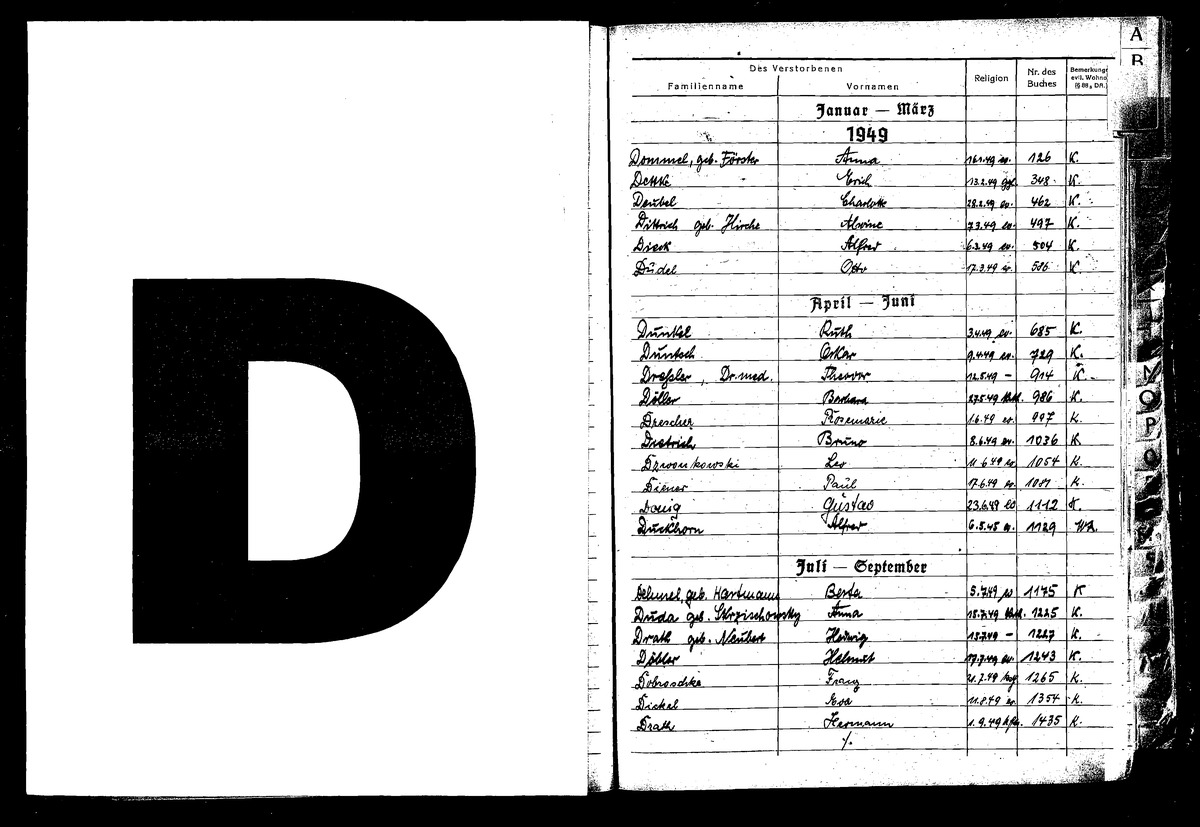 D
A
B
Des Verstorbenen
Familienname Vornamen Religion Nr. des Buches Bemerkung evtl. Wohno (§ 88a DA.)
Januar — März
1949
Dommel, geb. Förster Anna 16.1.49 ev. 126 K.
Dettke Erich 13.2.49 ggl. 348 K.
Deubel Charlotte 28.2.49 ev. 462 K.
Dittrich geb. Hirche Alwine 7.3.49 ev. 497 K.
Dieck Alfred 6.3.49 ev. 504 K.
Düdel Otto 17.3.49 ev. 586 K.
April — Juni
Dunkel Ruth 3.4.49 ev. 685 K.
Duntsch Oskar 9.4.49 ev. 729 K.
Dreßler, Dr. med. Theodor 12.5.49 — 914 K.
Döller Barbara 27.5.49 kath. 986 K.
Drescher Rosemarie 1.6.49 ev. 997 K.
Dietrich Bruno 8.6.49 ev. 1036 K
Dzwonkowski Leo 11.6.49 ev. 1054 K.
Diener Paul 17.6.49 ev. 1087 K.
Gustav 23.6.49 ev 1112 K.
Duckhorn Alfred 6.5.45 ev. 1129 WA.
Juli — September
Dehmel, geb. Hartmann Berta 5.7.49 ev 1175 K
Duda geb. Skrzischowsky Anna 15.7.49 kath. 1225 K.
Drath geb. Neubert Hedwig 13.7.49 — 1227 K.
Döbler Helmut 17.7.49 ev. 1243 K.
Dobroschke Franz 21.7.49 1265 K.
Dickel Eva 11.8.49 ev. 1354 K.
Drath Hermann 1.9.49 1435 K.
./.
N
O
P